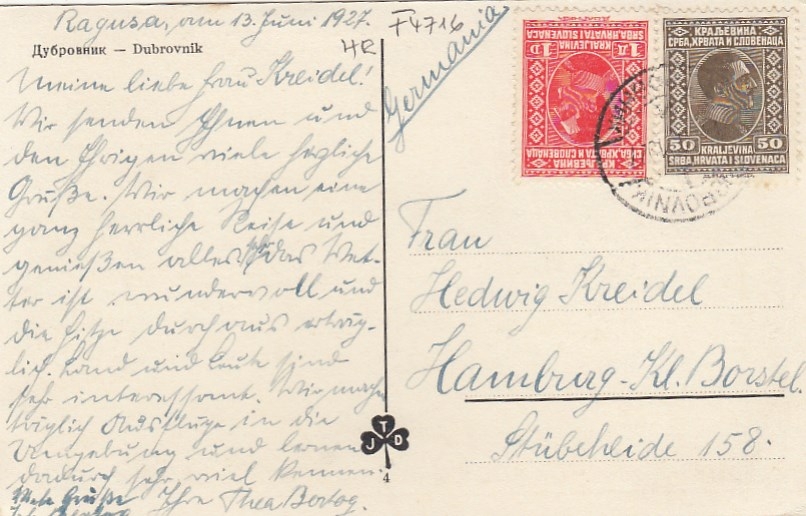 Ragusa, am 13. Juni 1927.
F4716
HR
Дубровник — Dubrovnik
Germania
Meine liebe Frau Kreidel!
Wir senden Ihnen und
den Ihrigen viele herzliche
Grüße. Wir machen eine
ganz herrliche Reise und
genießen alles sehr das Wet-
ter ist wundervoll und
die Hitze durchaus erträg-
lich. Land und Leute sind
sehr interessant. Wir mach
täglich Ausflüge in die
Umgebung und lernen
dadurch sehr viel kennen.
Viele Grüße Ihre Thea
JTD
4
1D КРАЉЕВИНА 1Д
СРБА, ХРВАТА И СЛОВЕНАЦА
KRALJEVINA
SRBA, HRVATA I SLOVENACA
КРАЉЕВИНА
СРБА, ХРВАТА И СЛОВЕНАЦА
50 KRALJEVINA 50
SRBA, HRVATA I SLOVENACA
Frau
Hedwig Kreidel
Hamburg-Kl. Borstel.
Stübeheide 158.